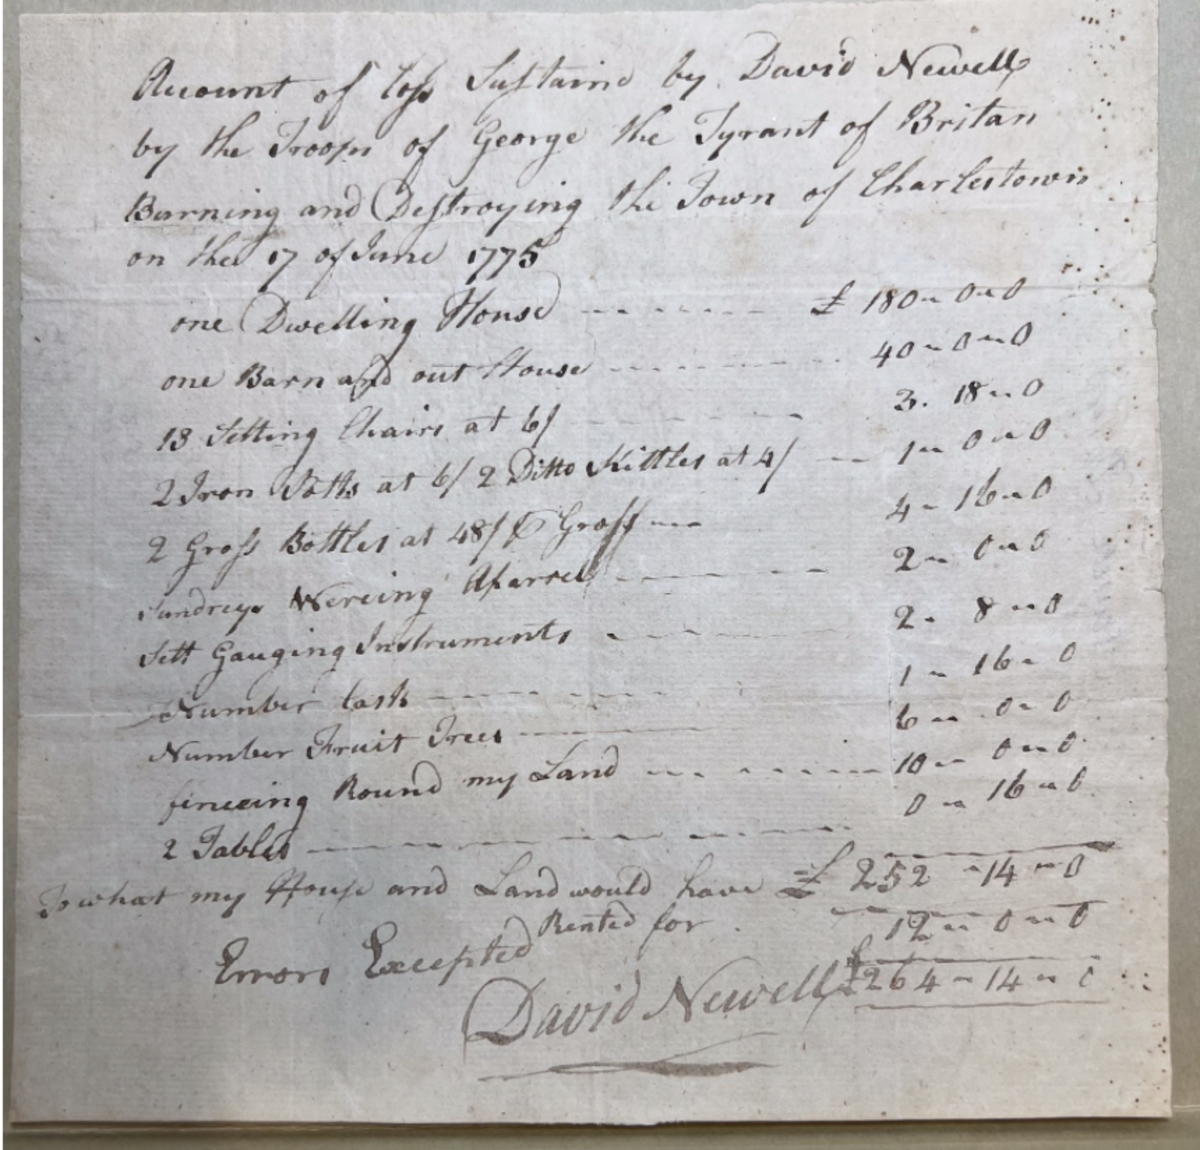 Account of Loss Sustaind by David Newell
by the Troops of George the Tyrant of Britan
Burning and Destroying the Town of Charlestown
on the 17 of June 1775
one Dwelling House £ 180 - 0 - 0
one Barn and out House 40 - 0 - 0
13 Setting Chairs at 6/ 3 - 18 - 0
2 Iron Potts at 6/ 2 Ditto Kittles at 4/ 1 - 0 - 0
2 Gross Bottles at 48/ ⅌ Gross 4 - 16 - 0
Sundreys Wereing Aparrel 2 - 0 - 0
Sett Gauging Instruments 2 - 8 - 0
Number Cask 1 - 16 - 0
Number Fruit Trees 6 - 0 - 0
fenceing Round my Land 10 - 0 - 0
2 Tables 0 - 16 - 0
£ 252 - 14 - 0
To what my House and Land would have
Rented for 12 - 0 - 0
Errors Excepted £264 - 14 - 0
David Newell